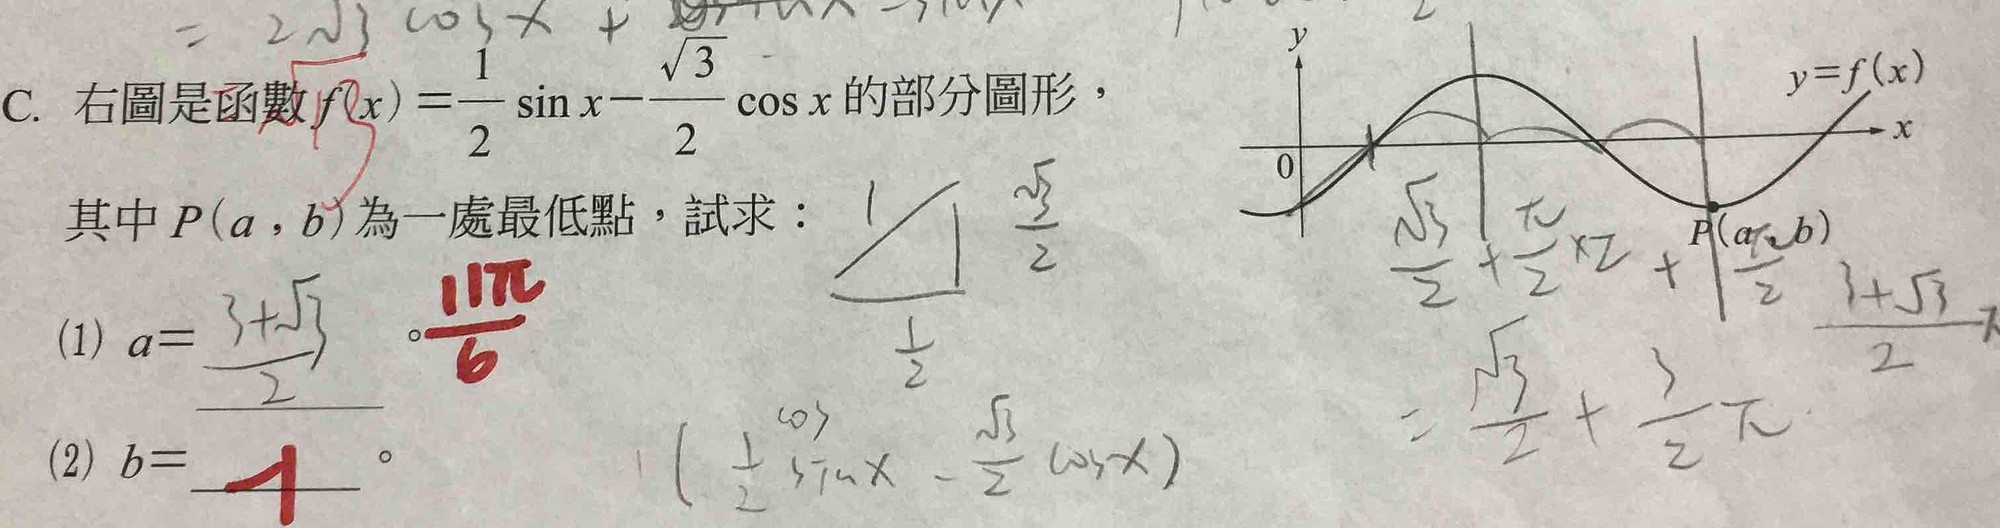 = 2√3 cos x +
C. 右圖是函數 f(x) = 1/2 sin x − √3/2 cos x 的部分圖形，
其中 P(a，b) 為一處最低點，試求：
(1) a= (3+√3)/2 。 11π/6
(2) b= -1 。
1 √3/2 1/2
( 1/2 cos sin x - √3/2 cos x )
y
y=f(x)
x
0
P(a，b)
√3/2 + π/2 ×2 + π/2
(3+√3)/2 π
= √3/2 + 3/2 π